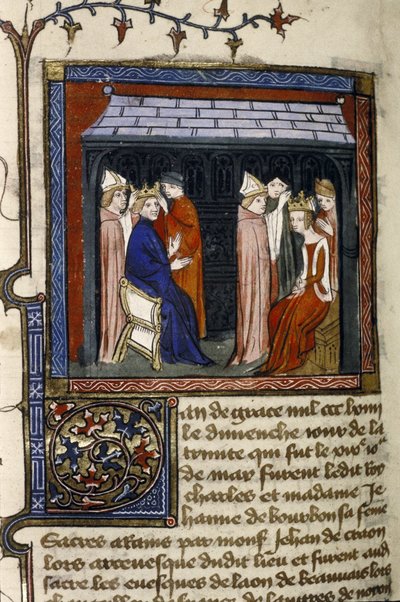 Lan de grace mil ccc lxiiii
le dimenche iour de la
trinite qui fut le iour
de may furent ledit roy
charles et madame Je
hanne de bourbon sa feme
Sacres a rains par mons Jehan de craon
lors arcevesque dudit lieu et furent aud
sacre les evesques de laon de beauvais lors
de langres de noyon